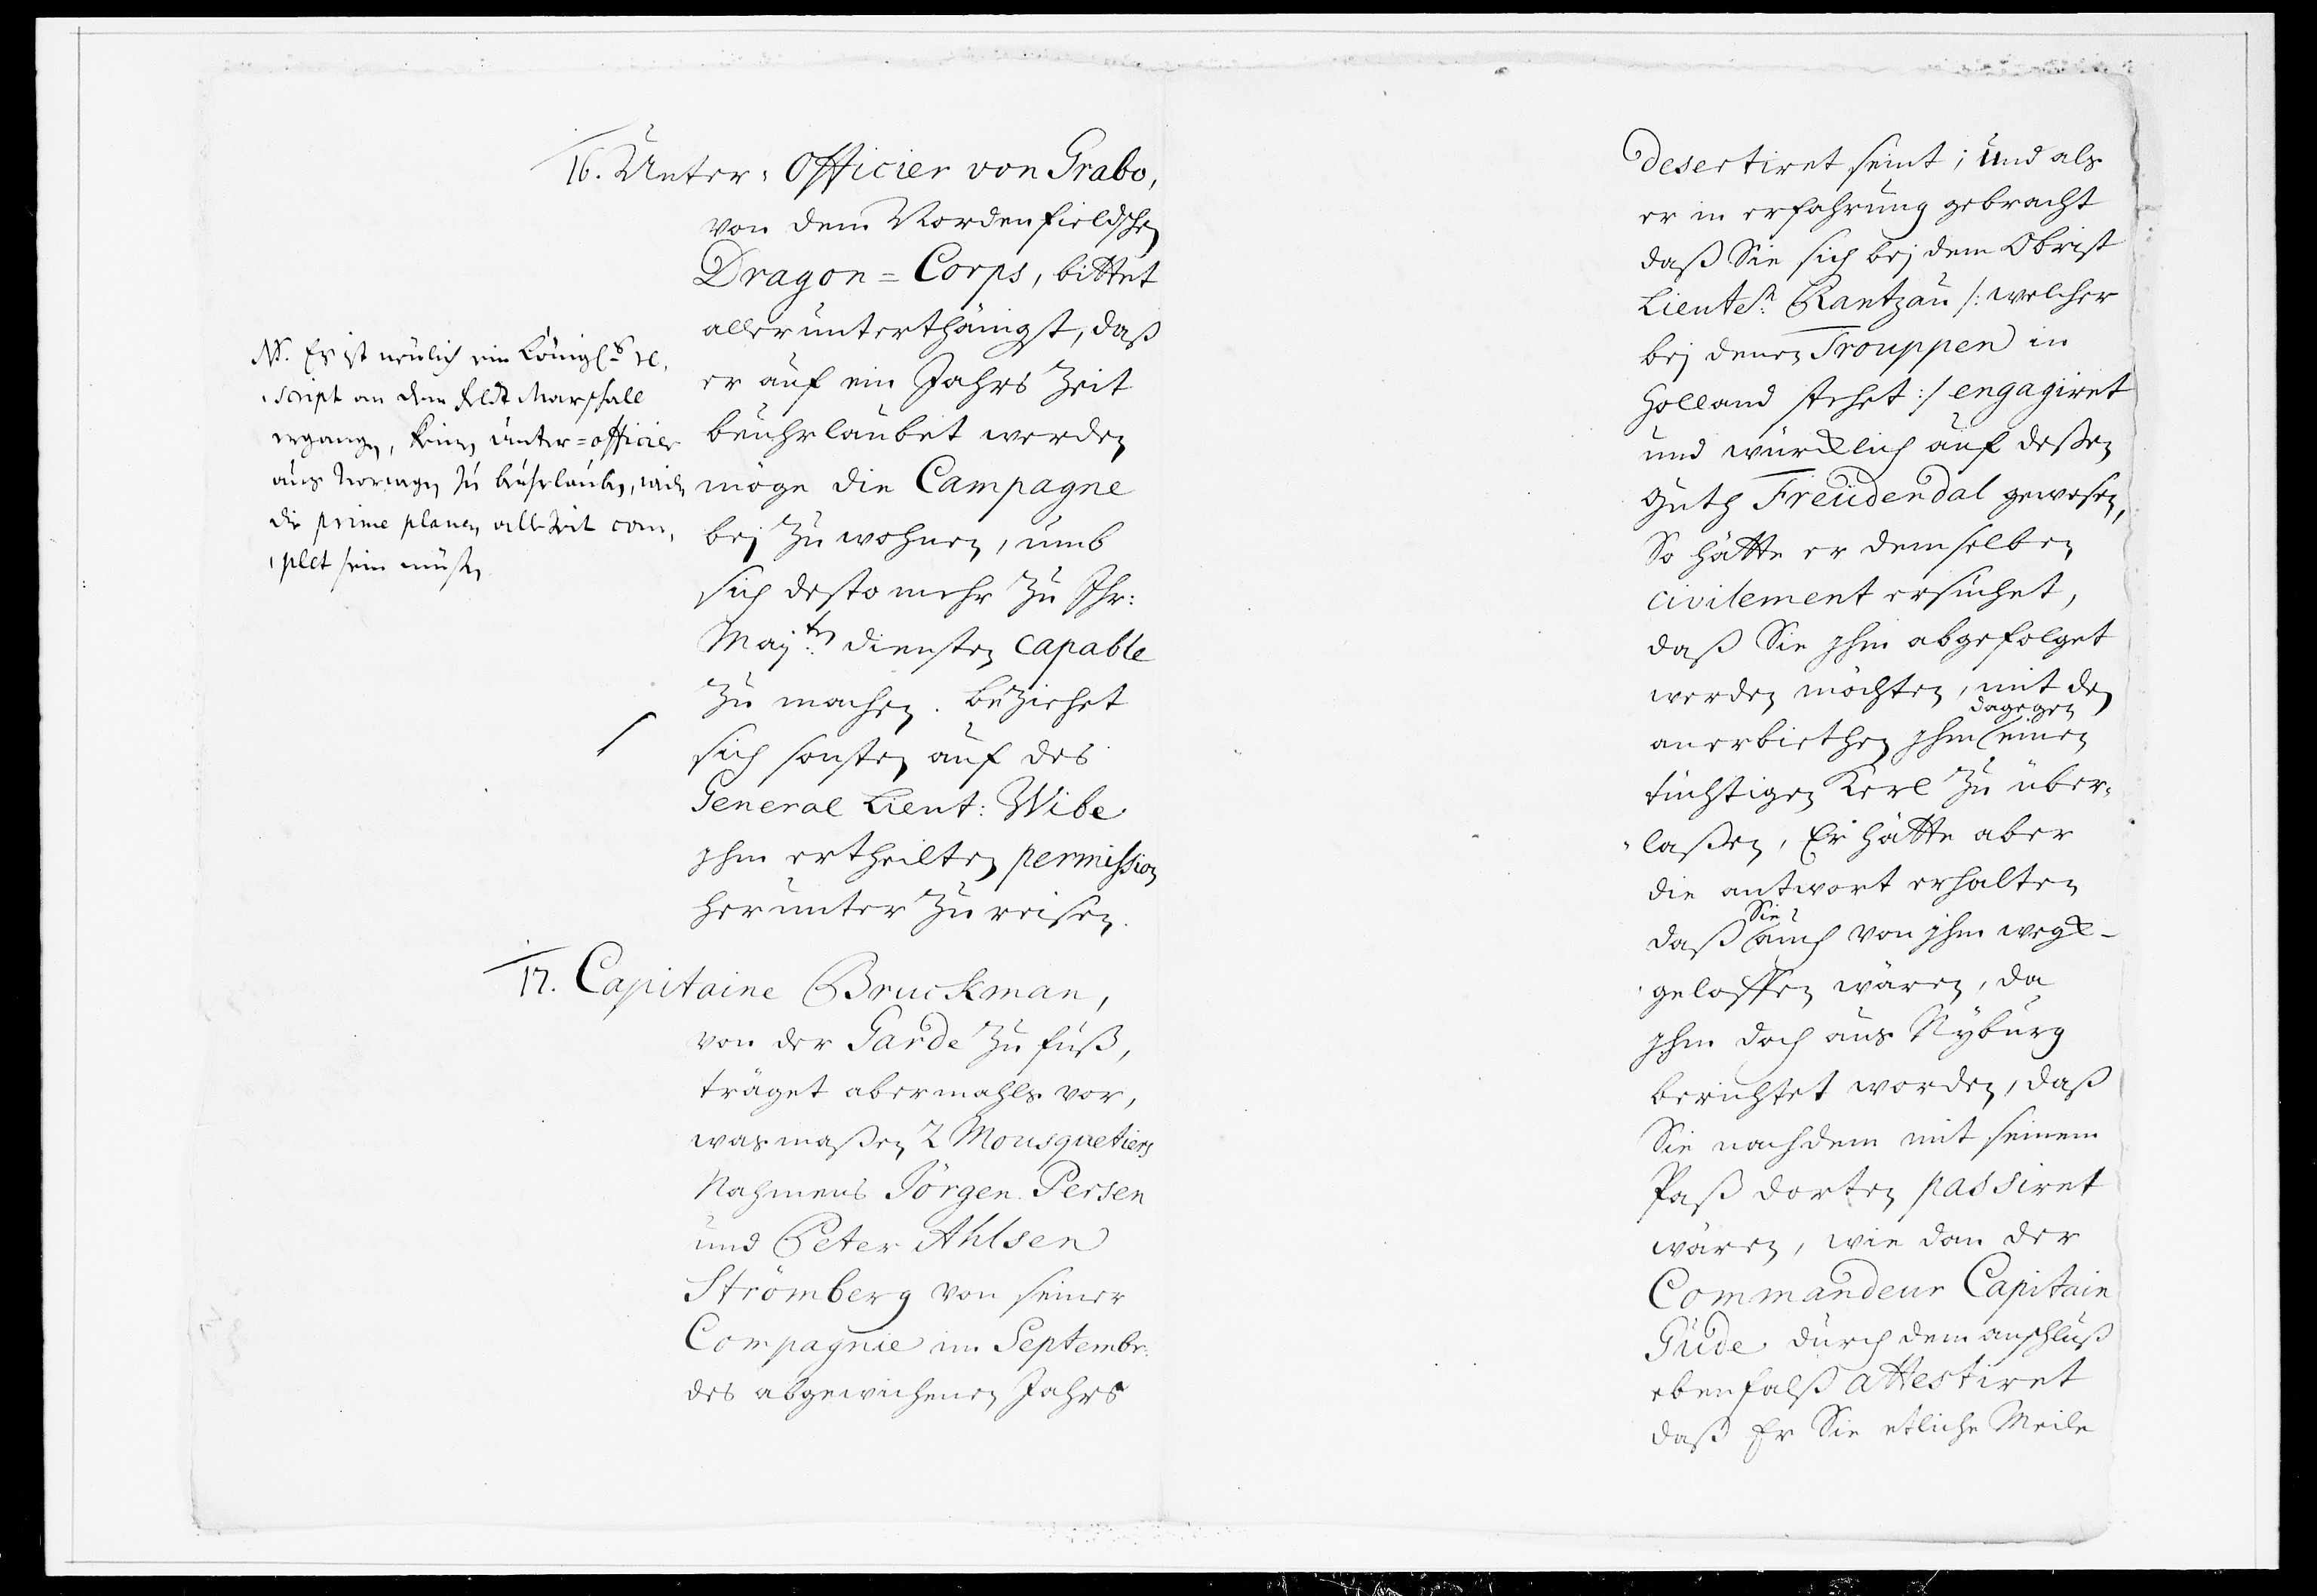 16. Unter-Officier von Grabo,
von dem Nordenfieldschen
Dragon=Corps, bittet
allerunterthänigst, daß
er auf ein Jahrs Zeit
beuhrlaubet werden
möge die Campagne
bej zu wohnen, umb
sich desto mehr zu Ihr:
Maj:tn diensten capable
zu machen. beziehet
sich sonsten auf des
General Lieut: Wibe
jhm ertheilten permission
herunter zu reisen.
NB. Es ist neulich ein Königl:s re-
script an dem Feldt Marschall
ergangen, keinen unter=officier
aus Norwegen zu beuhrlauben, weilen
die prime planen allezeit com-
plet sein müßen
17. Capitaine Bruckman,
von der Garde zu fuß,
träget abermahls vor,
wasmaßen 2 Mousquetiers
Nahmens Jörgen Persen
und Peter Ahlsen
Strömberg von seiner
Compagnie im Septembr:
des abgewichenen Jahrs
desertiret seint; und als
er in erfahrung gebracht
daß Sie sich bej dem Obrist
Lieutent: Rantzau /: welcher
bej denen Trouppen in
Holland stehet :/ engagiret
und würcklich auf deßen
Guth Freudendal gewesen,
So hätte er demselben
civilement ersuchet,
daß Sie jhm abgefolget
werden möchten, mit den
anerbiethen jhm dagegen einen
tüchtigen Kerl zu über-
laßen, Er hätte aber
die antwort erhalten
daß Sie auch von jhm wegk-
geloffen wären, da
jhm doch aus Nyburg
berichtet worden, daß
Sie nachdem mit seinem
Paß dorten passiret
wären, wie dan der
Commandeur Capitain
Güde durch dem anschluß
ebenfalß attestiret
daß Er Sie etliche Meile